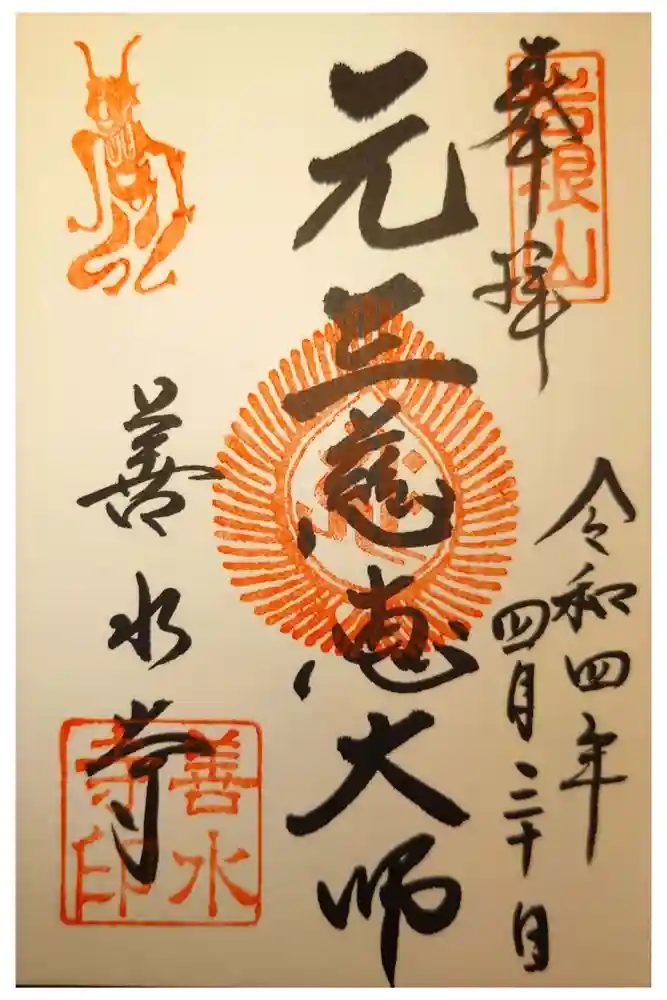 奉拝
岩根山
令和四年
四月三十日
元三慈恵大師
善水寺
善水
寺印